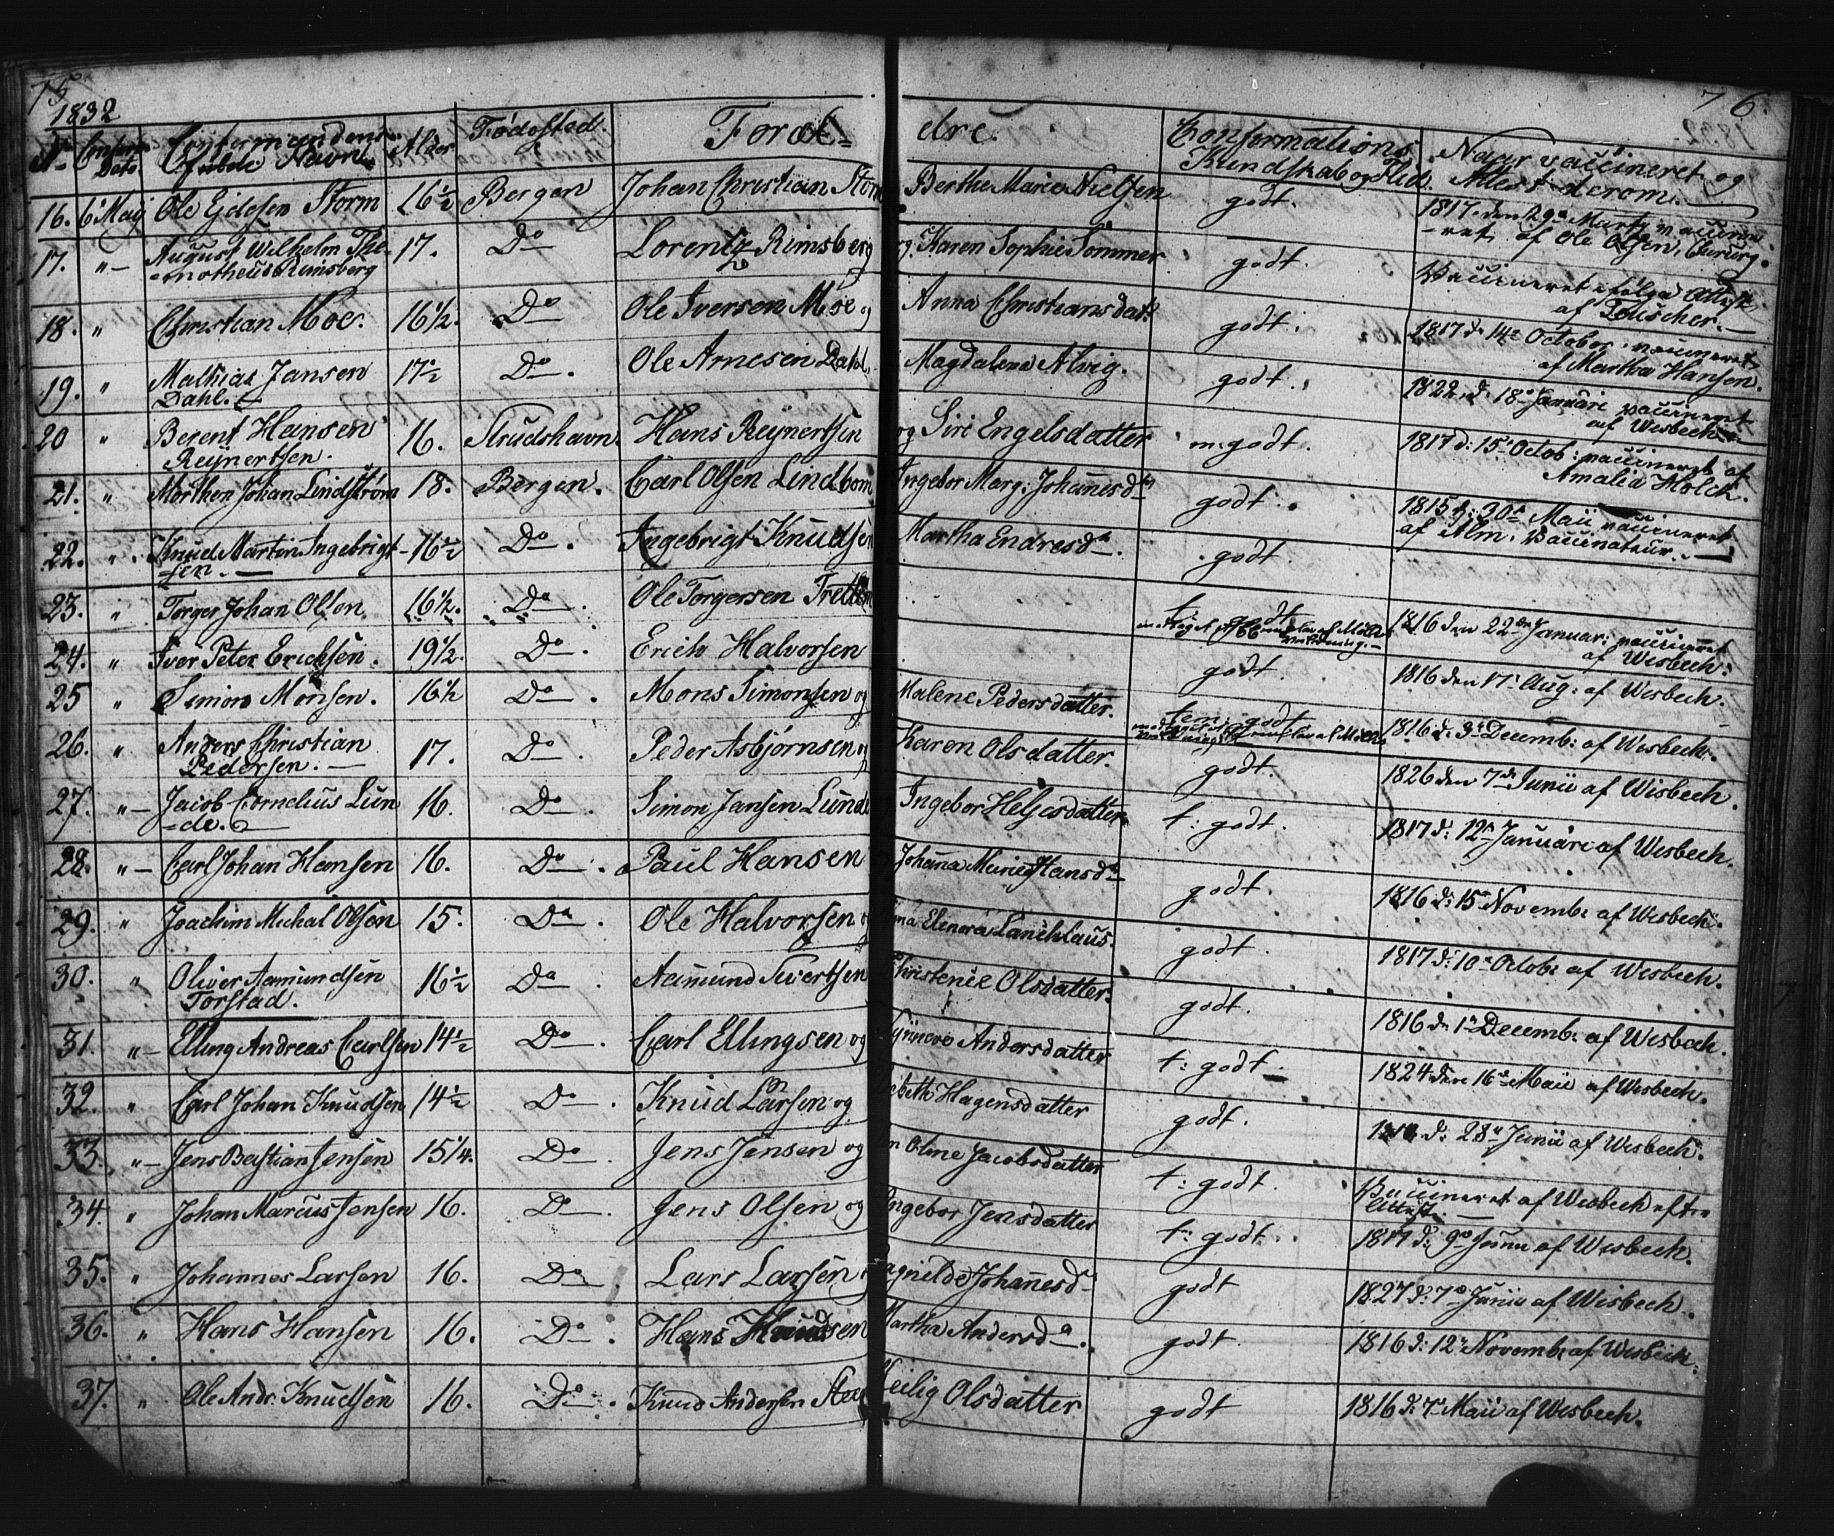 75
1832
76.
No Confirm: Dato. Confirmandens fulde Navn. Alder Fødested. Foræl- dre. Confirmations Kundskab og Flid. Naar vaccineret og Attest derom.
16. 6 Maij Ole Edesen Storm 16½ Bergen Johan Christian Storm Berthe Marie Nielsen godt. 1817. den 29 Marty vaccine-
-ret af Ole Olsen, Chirurg.
17. "- August Wilhelm The- 17. Do Lorentz Rimsberg og Karen Sophie Sommer godt. Vaccineret efølge Attest
-motheus Rimsberg af Touscher.
18. " Christian Moe. 16½. Do Ole Iversen Moe og Anna Christiansdatr godt. 1817 d: 14 October vaccineret
af Martha Hansen.
19. " Mathias Jansen 17½ Do. Ole Arnesen Dahl. Magdalena Alvig. godt. 1822. d. 18 Januari vaccineret
Dahl. af Wisbech.
20 " Berent Hansen 16. Strudshavn Hans Reijnertsen og Siri Engelsdatter m: godt. 1817 d: 15 Octob: vaccineret af
Reijnertsen. Amalia Holck.
21. " Morthen Johan Lindstrøm 18. Bergen. Carl Olsen Lindbom Ingebor Marg: Johannesdtr godt. 1815 d: 30 Maii vaccineret
af Alm. Vaccinateur.
22. " Knud Martin Ingebrigt- 16½ Do. Ingebrigt Knudsen Martha Endresdr. godt.
sen.
23. " Torger Johan Olsen 16½. Do. Ole Torgersen t: godt 1816 den 22 Januar: vaccineret
af Wisbech.
24. " Iver Peter Erichsen. 19½. Do. Erich Halvorsen godt. 1816 den 17 Aug: af Wisbech.
25 " Simon Monsen. 16½ Do. Mons Simonsen og Malene Pedersdatter. tem: godt 1816 d: 3 Decemb: af Wisbech.
26. " Anders Christian 17. Do. Peder Asbjørnsen og Karen Olsdatter. godt. 1826 den 7 Junii af Wisbech.
Pedersen.
27. "- Jacob Cornelius Lun 16. Do. Simon Jansen Lunde Ingebor Heljesdatter t: godt. 1817 d: 12 Januari af Wisbech.
-de.
28. "- Carl Johan Hansen 16. Do. Paul Hansen Johana Marie Hansdr godt. 1816 d: 15 Novemb: af Wisbech.
29. " Joachim Michal Olsen 15. Do. Ole Halvorsen Elenora godt. 1817 d: 10 Octob: af Wisbech.
30. " Oliver Aamundsen 16½ Do. Aamund Sivertsen Christense Olsdatter. godt. 1816 d 1 Decemb: af Wisbech.
Torstad.
31. "- Elling Andreas Carlsen 14½ Do. Carl Ellingsen og Andersdatter t: godt. 1824 den 16 Maii af Wisbech.
32. " Carl Johan Knudsen 14½ Do. Knud Larsen og Hagensdatter godt. d: 28 Junii af Wisbech.
33. "- Jens Bastian Jensen 15¼. Do. Jens Jensen og Oline Jacobsdatter t: godt. Vaccineret af Wisbech efter
Attest.
34. " Johan Marcus Jensen 16. Do. Jens Olsen og Ingebor Jensdatter t: godt. 1817 d: 9 Junii af Wisbech.
35. " Johannes Larsen 16. Do. Lars Larsen Johannesdr godt 1827 d: 7 Junii af Wisbech.
36. " Hans Hansen 16. Do. Hans Knudsen Martha Andersdr. godt. 1816 d: 12 Novemb: af Wisbech.
37. " Ole Andr: Knudsen 16. Do. Knud Andersen Olsdatter godt 1816 d: 7 Maii af Wisbech.